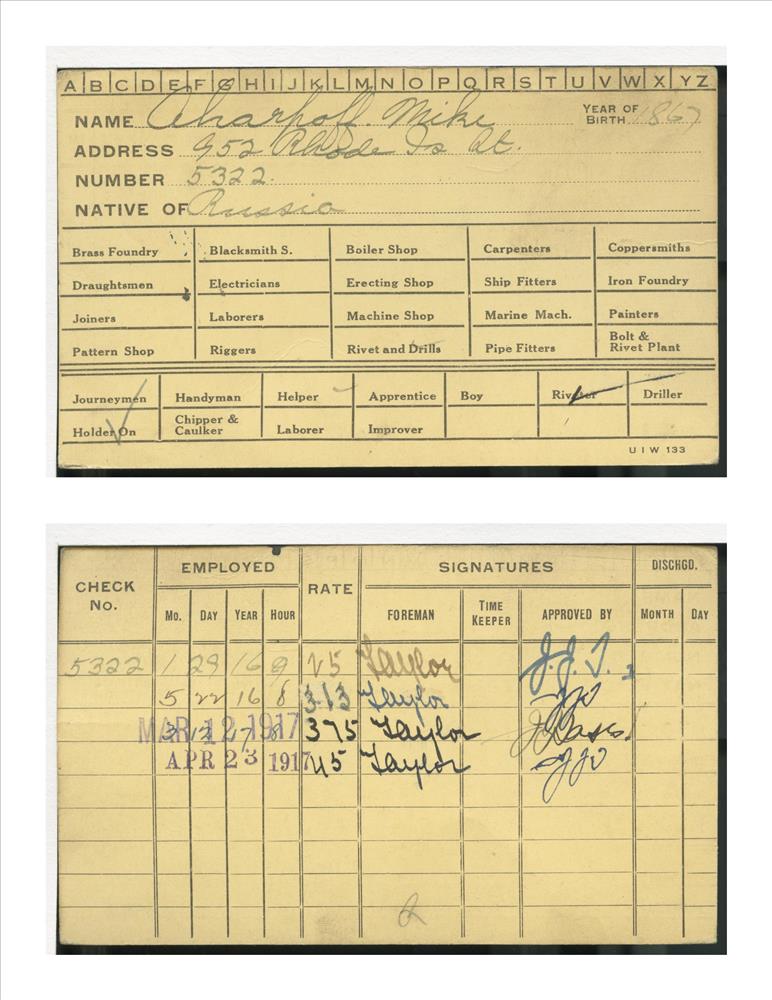 A B C D E F G H I J K L M N O P Q R S T U V W X Y Z
NAME Aharhoff. Mike YEAR OF BIRTH 1867
ADDRESS 952 Rhode Is St.
NUMBER 5322
NATIVE OF Russia
Brass Foundry Blacksmith S. Boiler Shop Carpenters Coppersmiths
Draughtsmen Electricians Erecting Shop Ship Fitters Iron Foundry
Joiners Laborers Machine Shop Marine Mach. Painters
Pattern Shop Riggers Rivet and Drills Pipe Fitters Bolt & Rivet Plant
Journeymen Handyman Helper Apprentice Boy Riveter Driller
Holder On Chipper & Caulker Laborer Improver
U I W 133
CHECK No. EMPLOYED RATE SIGNATURES DISCHGD.
Mo. DAY YEAR HOUR FOREMAN TIME KEEPER APPROVED BY MONTH DAY
5322 1 29 16 9 25 Taylor
5 22 16 8 313 Taylor
MAR 12 1917 375 Taylor
APR 23 1917 45 Taylor